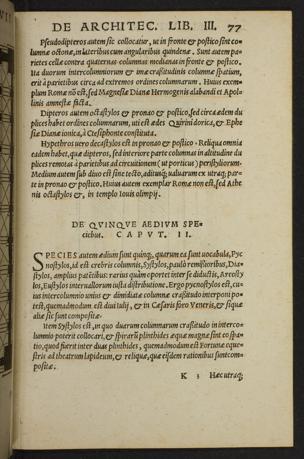 DE ARCHITEC. LIB. III. 77
Pseudodipteros autem sic collocatur, ut in fronte & postico sint co-
lumnæ octonæ, in lateribus cum angularibus quindenæ. Sunt autem pa-
rietes cellæ contra quaternas columnas medianas in fronte & postico.
Ita duorum intercolumniorum & imæ crassitudinis columnæ spatium,
erit à parietibus circa ad extremos ordines columnarum. Huius exem-
plum Romæ nō est, sed Magnesiæ Dianæ Hermogenis alabandi et Apol-
linis amnestæ facta.
Dipteros autem octastylos & pronao & postico, sed circa ædem du
plices habet ordines columnarum, uti est ædes Quirini dorica, & Ephe
siæ Dianæ ionica, à Ctesiphonte constituta.
Hypethros uero decastylos est in pronao & postico. Reliqua omnia
eadem habet, quæ dipteros, sed interiore parte columnas in altitudine du
plices remotas à parietibus ad circuitionem (ut porticus) peristyliorum.
Medium autem sub diuo est sine tecto, aditusq; ualuarum ex utraq; par-
te in pronao & postico. Huius autem exemplar Romæ non est, sed Athe
nis octastylos &, in templo Iouis olimpij.
DE QVINQVE AEDIVM SPE-
ciebus. CAPVT. II.
SPECIES autem ædium sunt quinq;, quarum ea sunt uocabula, Pyc
nostylos, id est crebris columnis, Systylos, paulò remissioribus, Dia-
stylos, amplius patentibus: rarius quàm oportet inter se diductis, Aræosty
los, Eustylos interuallorum iusta distributione. Ergo pycnostylos est, cu-
ius intercolumnio unius & dimidiatæ columnæ crassitudo interponi po-
test, quemadmodum est diui iulij, & in Cæsaris foro Veneris, & si quæ
aliæ sic sunt compositæ.
Item Systylos est, in quo duarum columnarum crassitudo in interco-
lumnio poterit collocari, & spirarū plinthides æquæ magnæ sint eo spa-
tio, quod fuerit inter duas plinthides, quemadmodum est Fortunæ eque-
stris ad theatrum lapideum, & reliquæ, quæ eisdem rationibus sunt com-
positæ.
K 3 Hæc utraq;